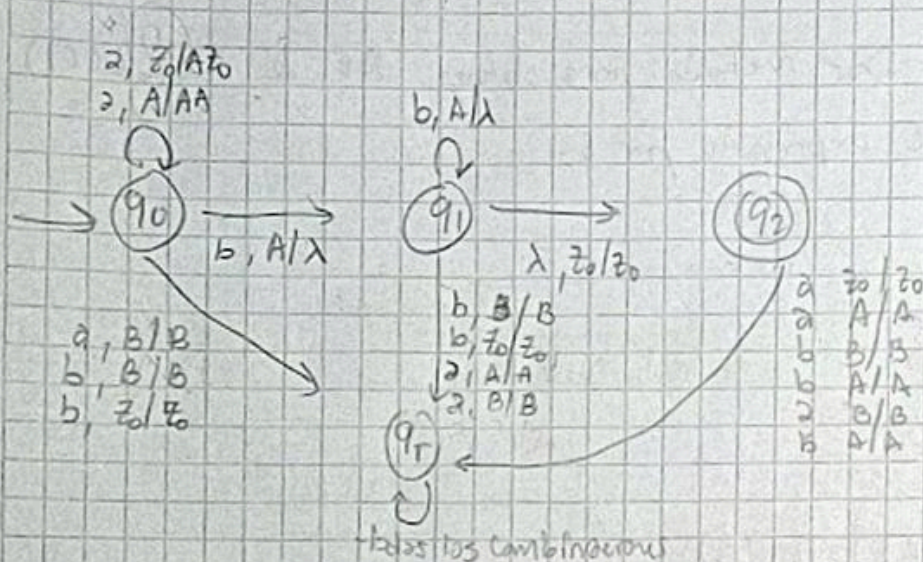 a, z₀/Az₀
a, A/AA
b, A/λ
q₀
q₁
q₂
b, A/λ
λ, z₀/z₀
a, B/B
b, B/B
b, z₀/z₀
b, B/B
b, z₀/z₀
a, A/A
a, B/B
a z₀/z₀
a A/A
b B/B
b A/A
a B/B
b A/A
qᵣ
todas las combinaciones